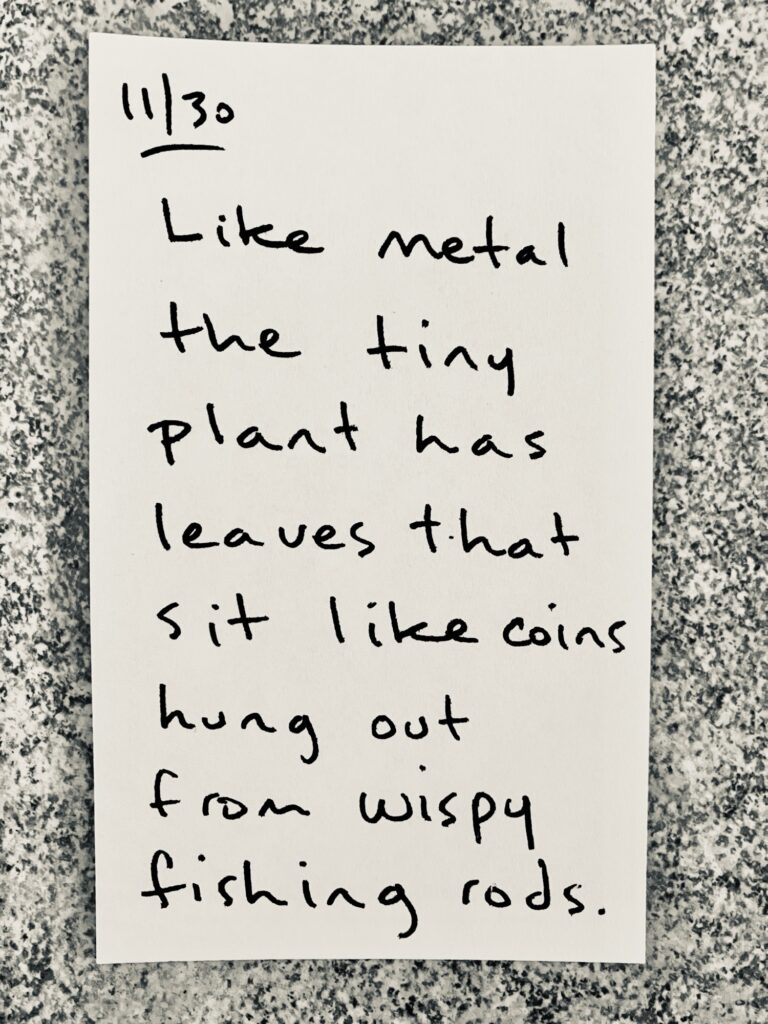 11/30
Like metal
the tiny
plant has
leaves that
sit like coins
hung out
from wispy
fishing rods.